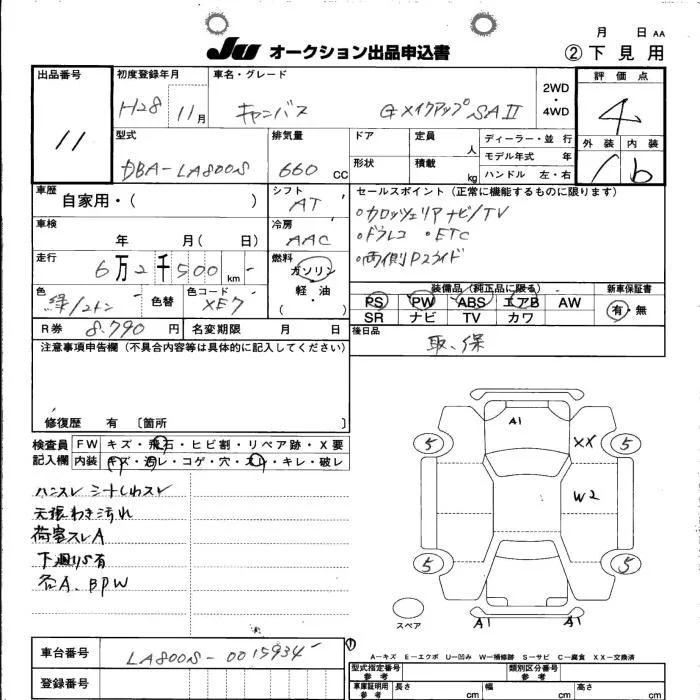 月 日 AA
JU オークション出品申込書
② 下見用
出品番号
11
初度登録年月
H28 11月
車名・グレード
キャンバス Gメイクアップ SAⅡ
2WD・4WD
評価点
4
外装 内装
b
型式
DBA-LA800S
排気量
660 CC
ドア
定員 人
形状
積載 kg
ディーラー・並行
モデル年式 年
ハンドル 左・右
車歴
自家用・( )
シフト
AT
セールスポイント（正常に機能するものに限ります）
○カロッツェリアナビ/TV
○ドラレコ ○ETC
○両側Pスライド
車検
年 月( 日)
冷房
AAC
走行
6万2千500 km
燃料
ガソリン・軽油
( )
色
緑/2トン
色替
色コード
XE7
装備品（純正品に限る）
新車保証書
PS PW ABS エアB AW
SR ナビ TV カワ
有・無
R券 8.790 円
名変期限 月 日
後日品
取、保
注意事項申告欄（不具合内容等は具体的に記入してください）
修復歴 有 〔箇所 〕
検査員記入欄
FW キズ・飛石・ヒビ割・リペア跡・X要
内装 キズ・汚レ・コゲ・穴・スレ・キレ・破レ
ハンスレ シートしわスレ
天張わき汚れ
荷室スレA
下廻りS有
各A、BPW
A1
5 XX 5
W2
5 5
A1 A1
スペア
A-キズ E-エクボ U-凹み W-補修跡 S-サビ C-腐食 XX-交換済
車台番号
LA800S-0015934
登録番号
型式指定番号
参考
類別区分番号
参考
車庫証明用
参考
長さ cm
幅 cm
高さ cm